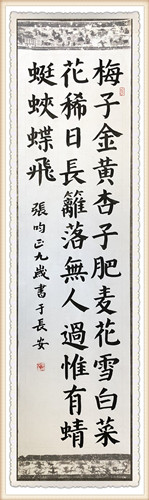 梅子金黃杏子肥麦花雪白菜
花稀日長籬落無人過惟有蜻
蜓蛺蝶飛
張昀正九歲書于長安